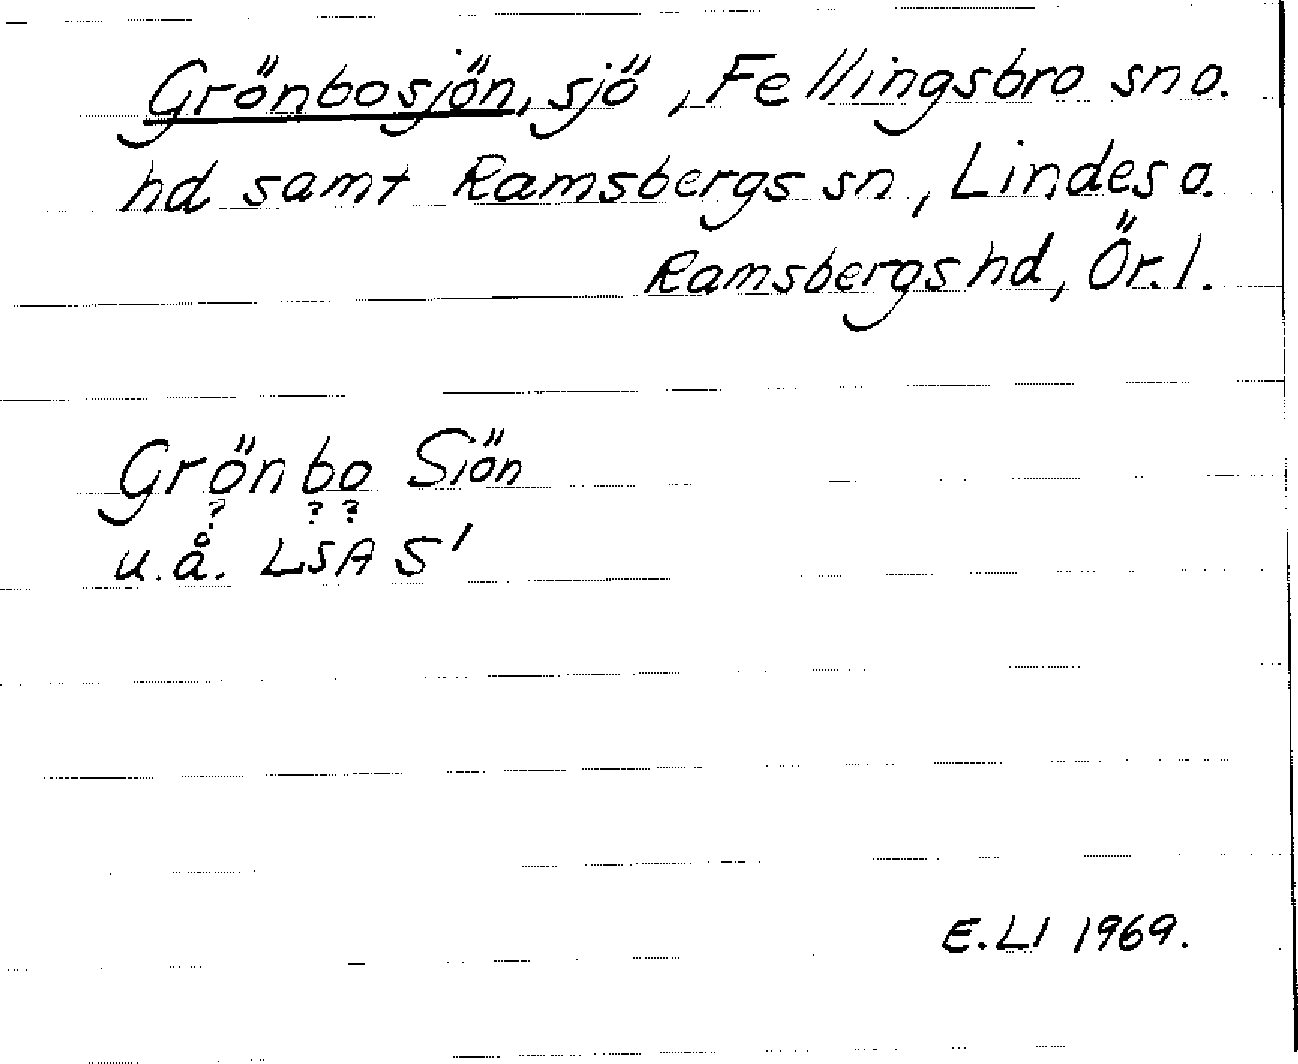 Grönbosjön, sjö, Fellingsbro sn o.
hd samt Ramsbergs sn, Lindes o.
Ramsbergs hd, Ör. l.
Grönbo Siön
? ? ?
u.å. LSA S1
E.LI 1969.